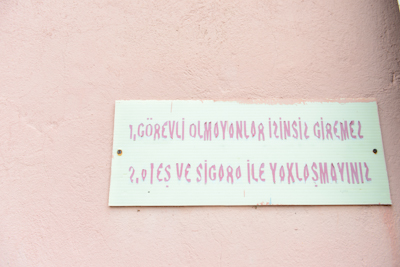 1,GÖREVLİ OLMAYANLAR İZİNSİZ GİREMEZ
2,ATEŞ VE SİGARA İLE YAKLAŞMAYINIZ